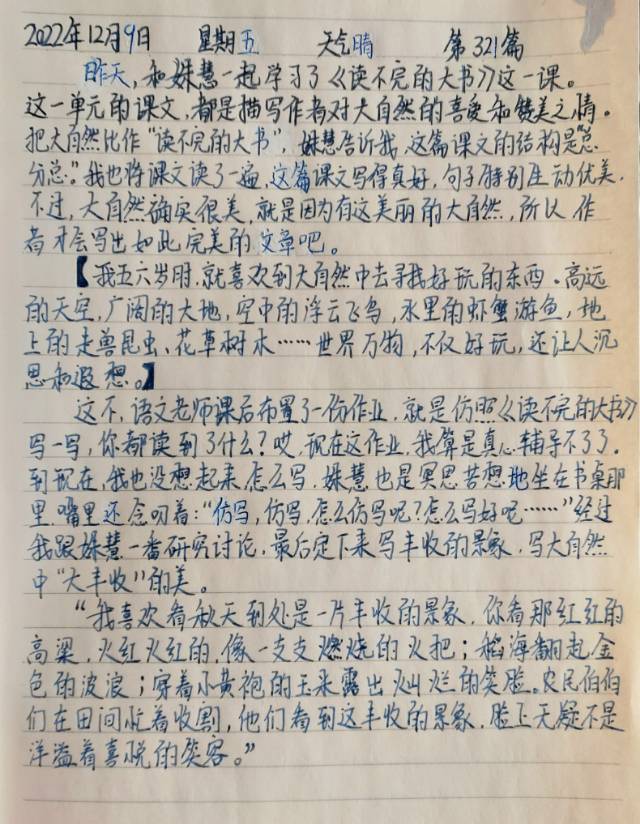 2022年12月9日 星期五 天气晴 第321篇
昨天,和姝慧一起学习了《读不完的大书》这一课。
这一单元的课文,都是描写作者对大自然的喜爱和赞美之情。
把大自然比作“读不完的大书”,姝慧告诉我,这篇课文的结构是“总
分总”。我也将课文读了一遍,这篇课文写得真好,句子特别生动优美.
不过,大自然确实很美,就是因为有这美丽的大自然,所以作
者才会写出如此完美的文章吧。
【我五六岁时,就喜欢到大自然中去寻找好玩的东西。高远
的天空,广阔的大地,空中的浮云飞鸟,水里的虾蟹游鱼,地
上的走兽昆虫、花草树木……世界万物,不仅好玩,还让人沉
思和遐想。】
这不,语文老师课后布置了一份作业,就是仿照《读不完的大书》
写一写,你都读到了什么?哎,现在这作业,我算是真心辅导不了了.
到现在,我也没想起来怎么写,姝慧也是冥思苦想地坐在书桌那
里,嘴里还念叨着:“仿写,仿写,怎么仿写呢?怎么写好呢……”经过
我跟姝慧一番研究讨论,最后定下来写丰收的景象,写大自然
中“大丰收”的美。
“我喜欢看秋天到处是一片丰收的景象,你看那红红的
高粱,火红火红的,像一支支燃烧的火把;稻海翻起金
色的波浪;穿着小黄袍的玉米露出灿烂的笑脸。农民伯伯
们在田间忙着收割,他们看到这丰收的景象,脸上无疑不是
洋溢着喜悦的笑容。”